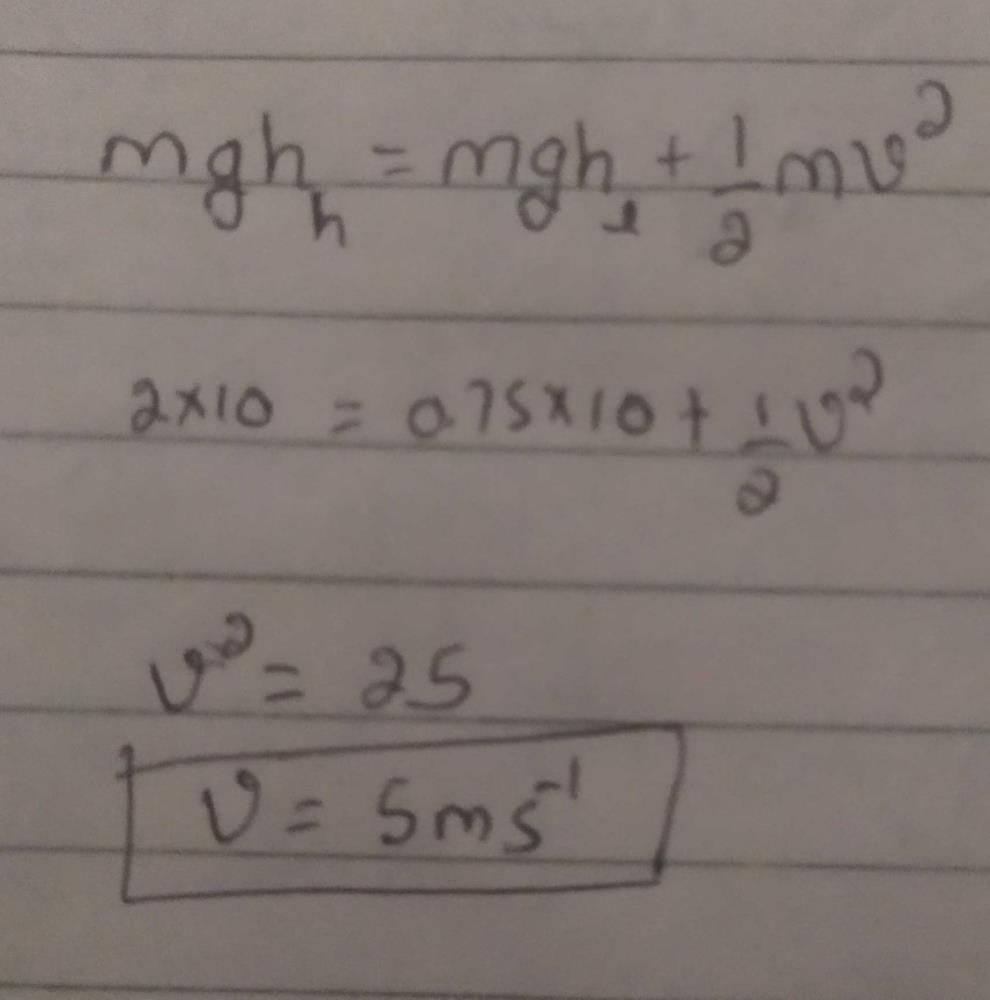 mgh_h = mgh_l + 1/2 mv²
2×10 = 0.75×10 + 1/2 v²
v² = 25
v = 5ms⁻¹